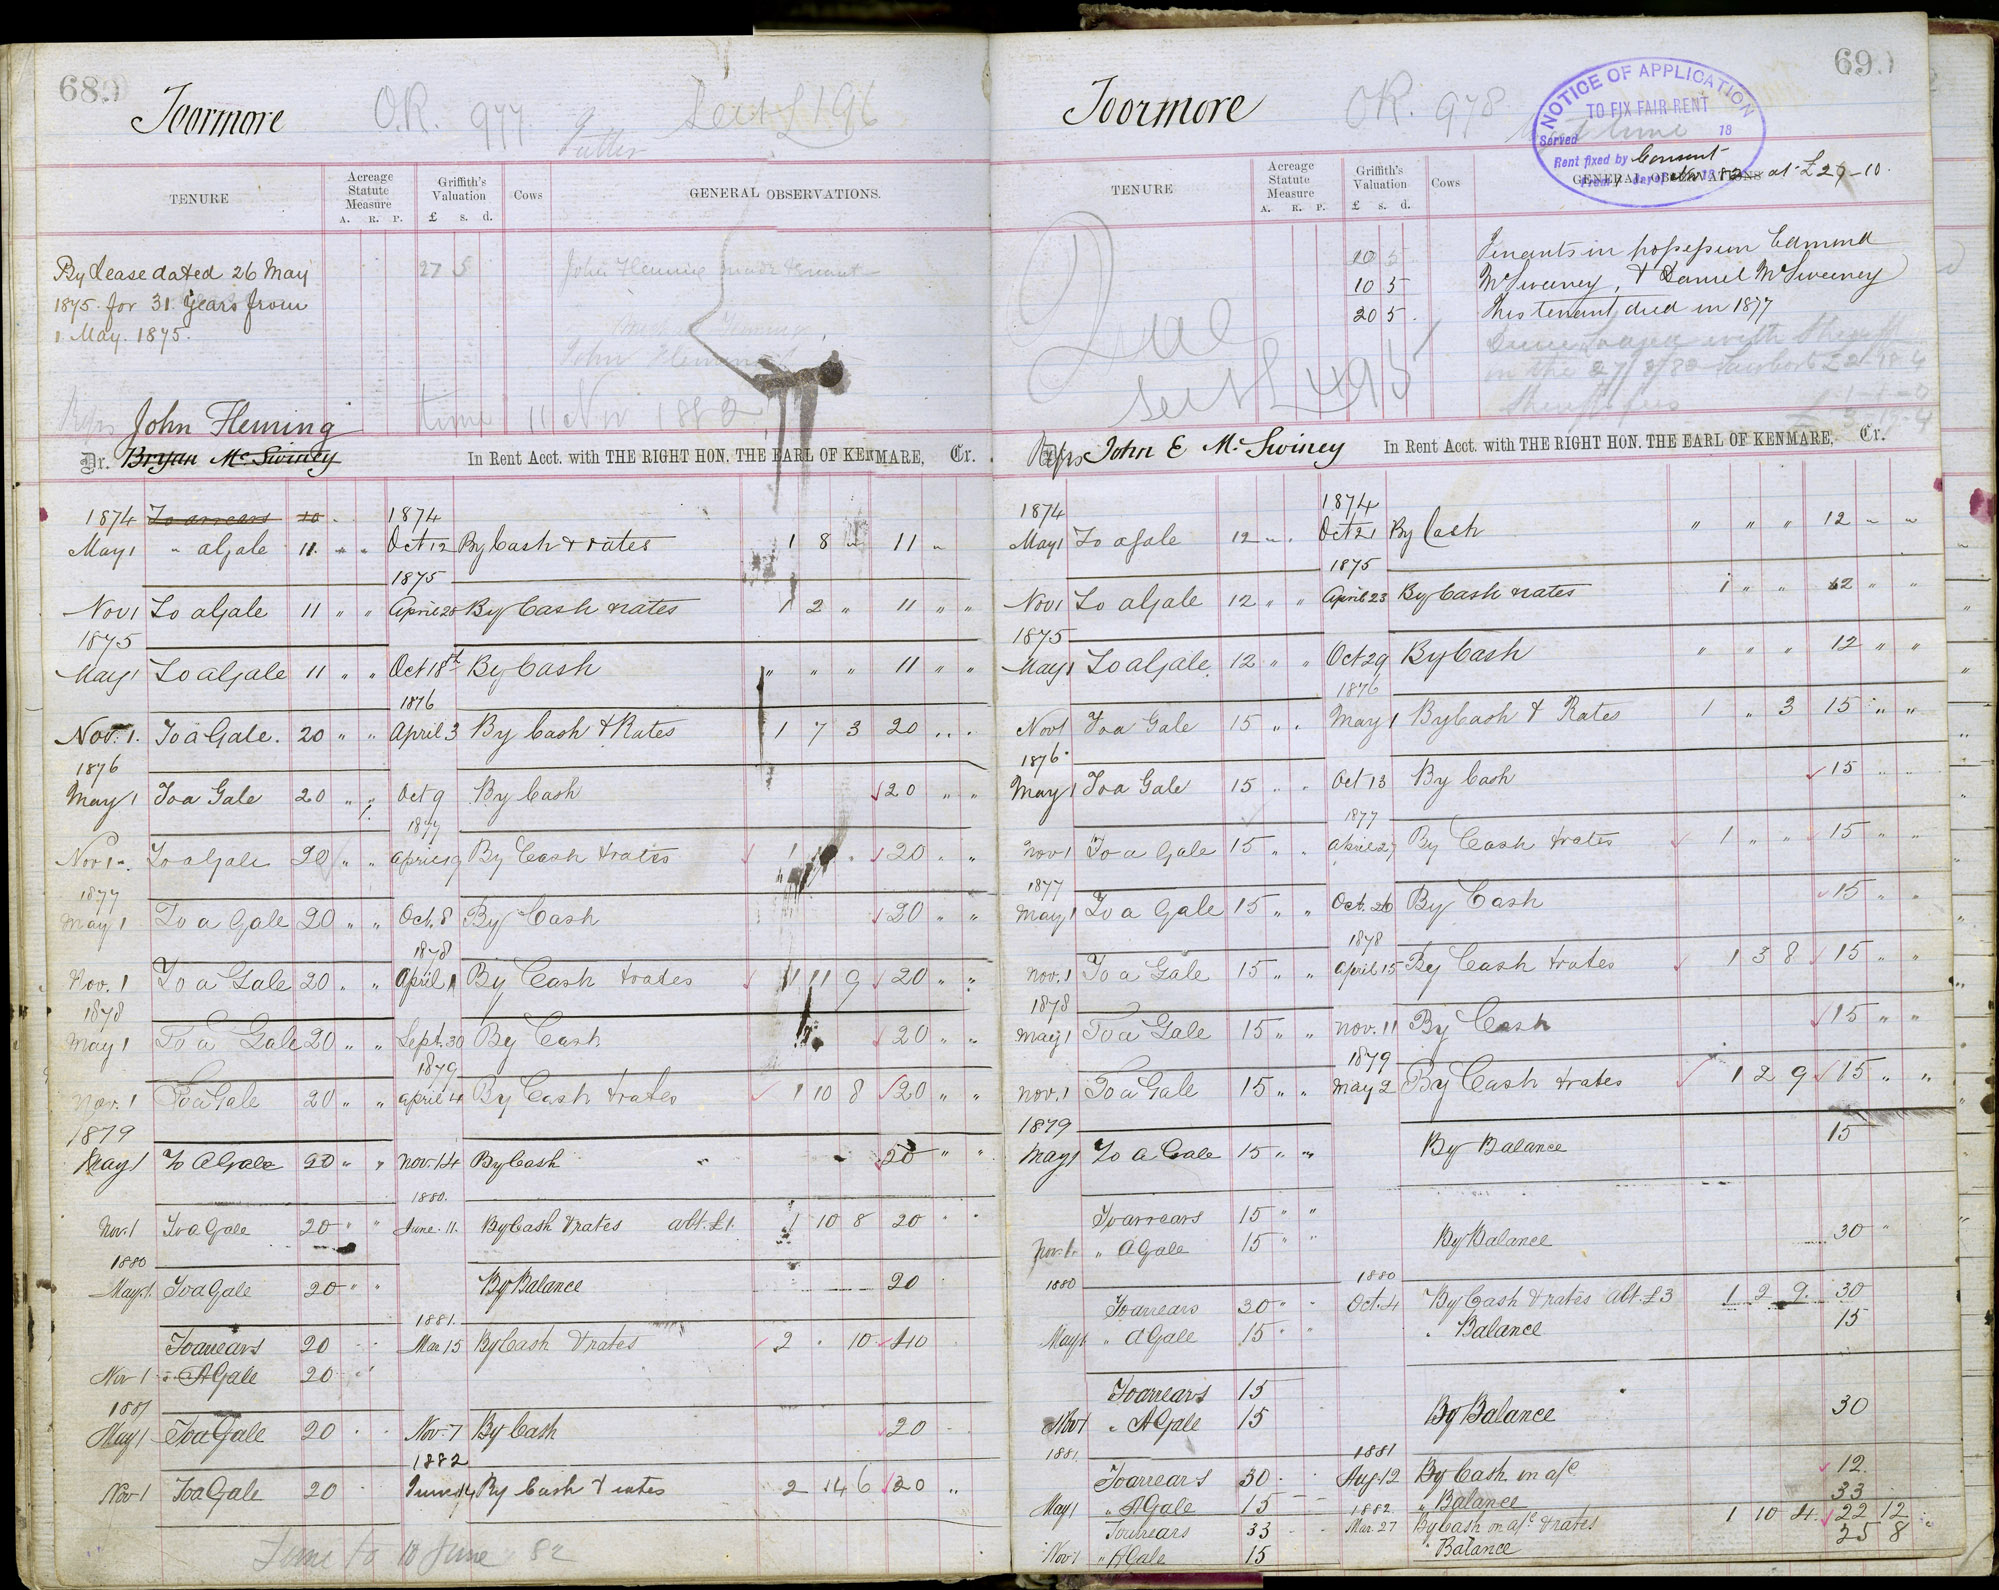 68
Toormore
O.R. 977
TENURE
Acreage Statute Measure
A. R. P.
Griffith's Valuation
£ s. d.
Cows
GENERAL OBSERVATIONS.
By Lease dated 26 May
1875 for 31 years from
1 May 1875.
27 5
John Fleming made tenant
John Fleming
time 11 Nov 1882
Reps John Fleming
Dr. Bryan McSwiney
In Rent Acct. with THE RIGHT HON. THE EARL OF KENMARE, Cr.
1874 To arrears 10 1874
May 1 " a Gale 11 " " Oct 12 By Cash & rates 1 8 " 11 "
1875
Nov 1 To a Gale 11 " " April 20 By Cash & rates 1 2 " 11 " "
1875
May 1 To a Gale 11 " " Oct 18th By Cash " " " 11 " "
1876
Nov. 1. To a Gale. 20 " " April 3 By Cash & Rates 1 7 3 20 " "
1876
May 1 To a Gale 20 " " Oct 9 By Cash 20 " "
1877
Nov 1 To a Gale 20 " " April 19 By Cash & rates 1 20 " "
1877
May 1 To a Gale 20 " " Oct. 8 By Cash 20 " "
1878
Nov. 1 To a Gale 20 " " April 1 By Cash & rates 1 11 9 20 " "
1878
May 1 To a Gale 20 " " Sept. 30 By Cash 20 " "
1879
Nov. 1 To a Gale 20 " " April 4 By Cash & rates 1 10 8 20 " "
1879
May 1 To A Gale 20 " " Nov. 14 By Cash 20 " "
1880.
Nov. 1 To a Gale 20 " " June 11. By Cash & rates abt. £1. 1 10 8 20 " "
1880
May 1. To a Gale 20 " " By Balance 20
1881.
To arrears 20 Mar 15 By Cash & rates 2 " 10 40
Nov 1 " A Gale 20
1881
May 1 To a Gale 20 Nov. 7 By Cash 20
1882
Nov 1 To a Gale 20 June 14 By Cash & rates 2 14 6 20 "
Time to 10 June 82
69
Toormore
OR. 978
NOTICE OF APPLICATION
TO FIX FAIR RENT
Served 18
Rent fixed by Consent
From day of Nov 82 at £29-10.
TENURE
Acreage Statute Measure
A. R. P.
Griffith's Valuation
£ s. d.
Cows
GENERAL OBSERVATIONS
10 5
10 5
20 5
Tenants in possession Edmond
McSweeney, & Daniel McSweeney
This tenant died in 1877
Reps John E McSwiney
In Rent Acct. with THE RIGHT HON. THE EARL OF KENMARE, Cr.
1874 1874
May 1 To a Gale 12 " " Oct 21 By Cash " " " 12 " "
1875
Nov 1 To a Gale 12 " " April 23 By Cash & rates 1 " " 12 " "
1875
May 1 To a Gale 12 " " Oct 29 By Cash " " " 12 " "
1876
Nov 1 To a Gale 15 " " May 1 By Cash & Rates 1 " 3 15 " "
1876
May 1 To a Gale 15 " " Oct 13 By Cash 15 " "
1877
Nov 1 To a Gale 15 " " April 27 By Cash & rates 1 " " 15 " "
1877
May 1 To a Gale 15 " " Oct. 26 By Cash 15 " "
1878
Nov. 1 To a Gale 15 " " April 15 By Cash & rates 1 3 8 15 " "
1878
May 1 To a Gale 15 " " Nov. 11 By Cash 15 " "
1879
Nov. 1 To a Gale 15 " " May 2 By Cash & rates 1 2 9 15 " "
1879
May 1 To a Gale 15 " " By Balance 15
To arrears 15 " "
Nov. 1. " A Gale 15 " " By Balance 30 "
1880 1880
To arrears 30 " " Oct. 4 By Cash & rates abt. £3 1 2 9. 30
May 1 " A Gale 15 " " " Balance 15
To arrears 15
Nov 1 " A Gale 15 By Balance 30
1881. 1881
To arrears 30 Aug 12 By Cash on a/c 12
May 1 " A Gale 15 " Balance 33
1882
To arrears 33 Mar. 27 By Cash on a/c & rates 1 10 4 22 12
Nov 1 " A Gale 15 " Balance 25 8